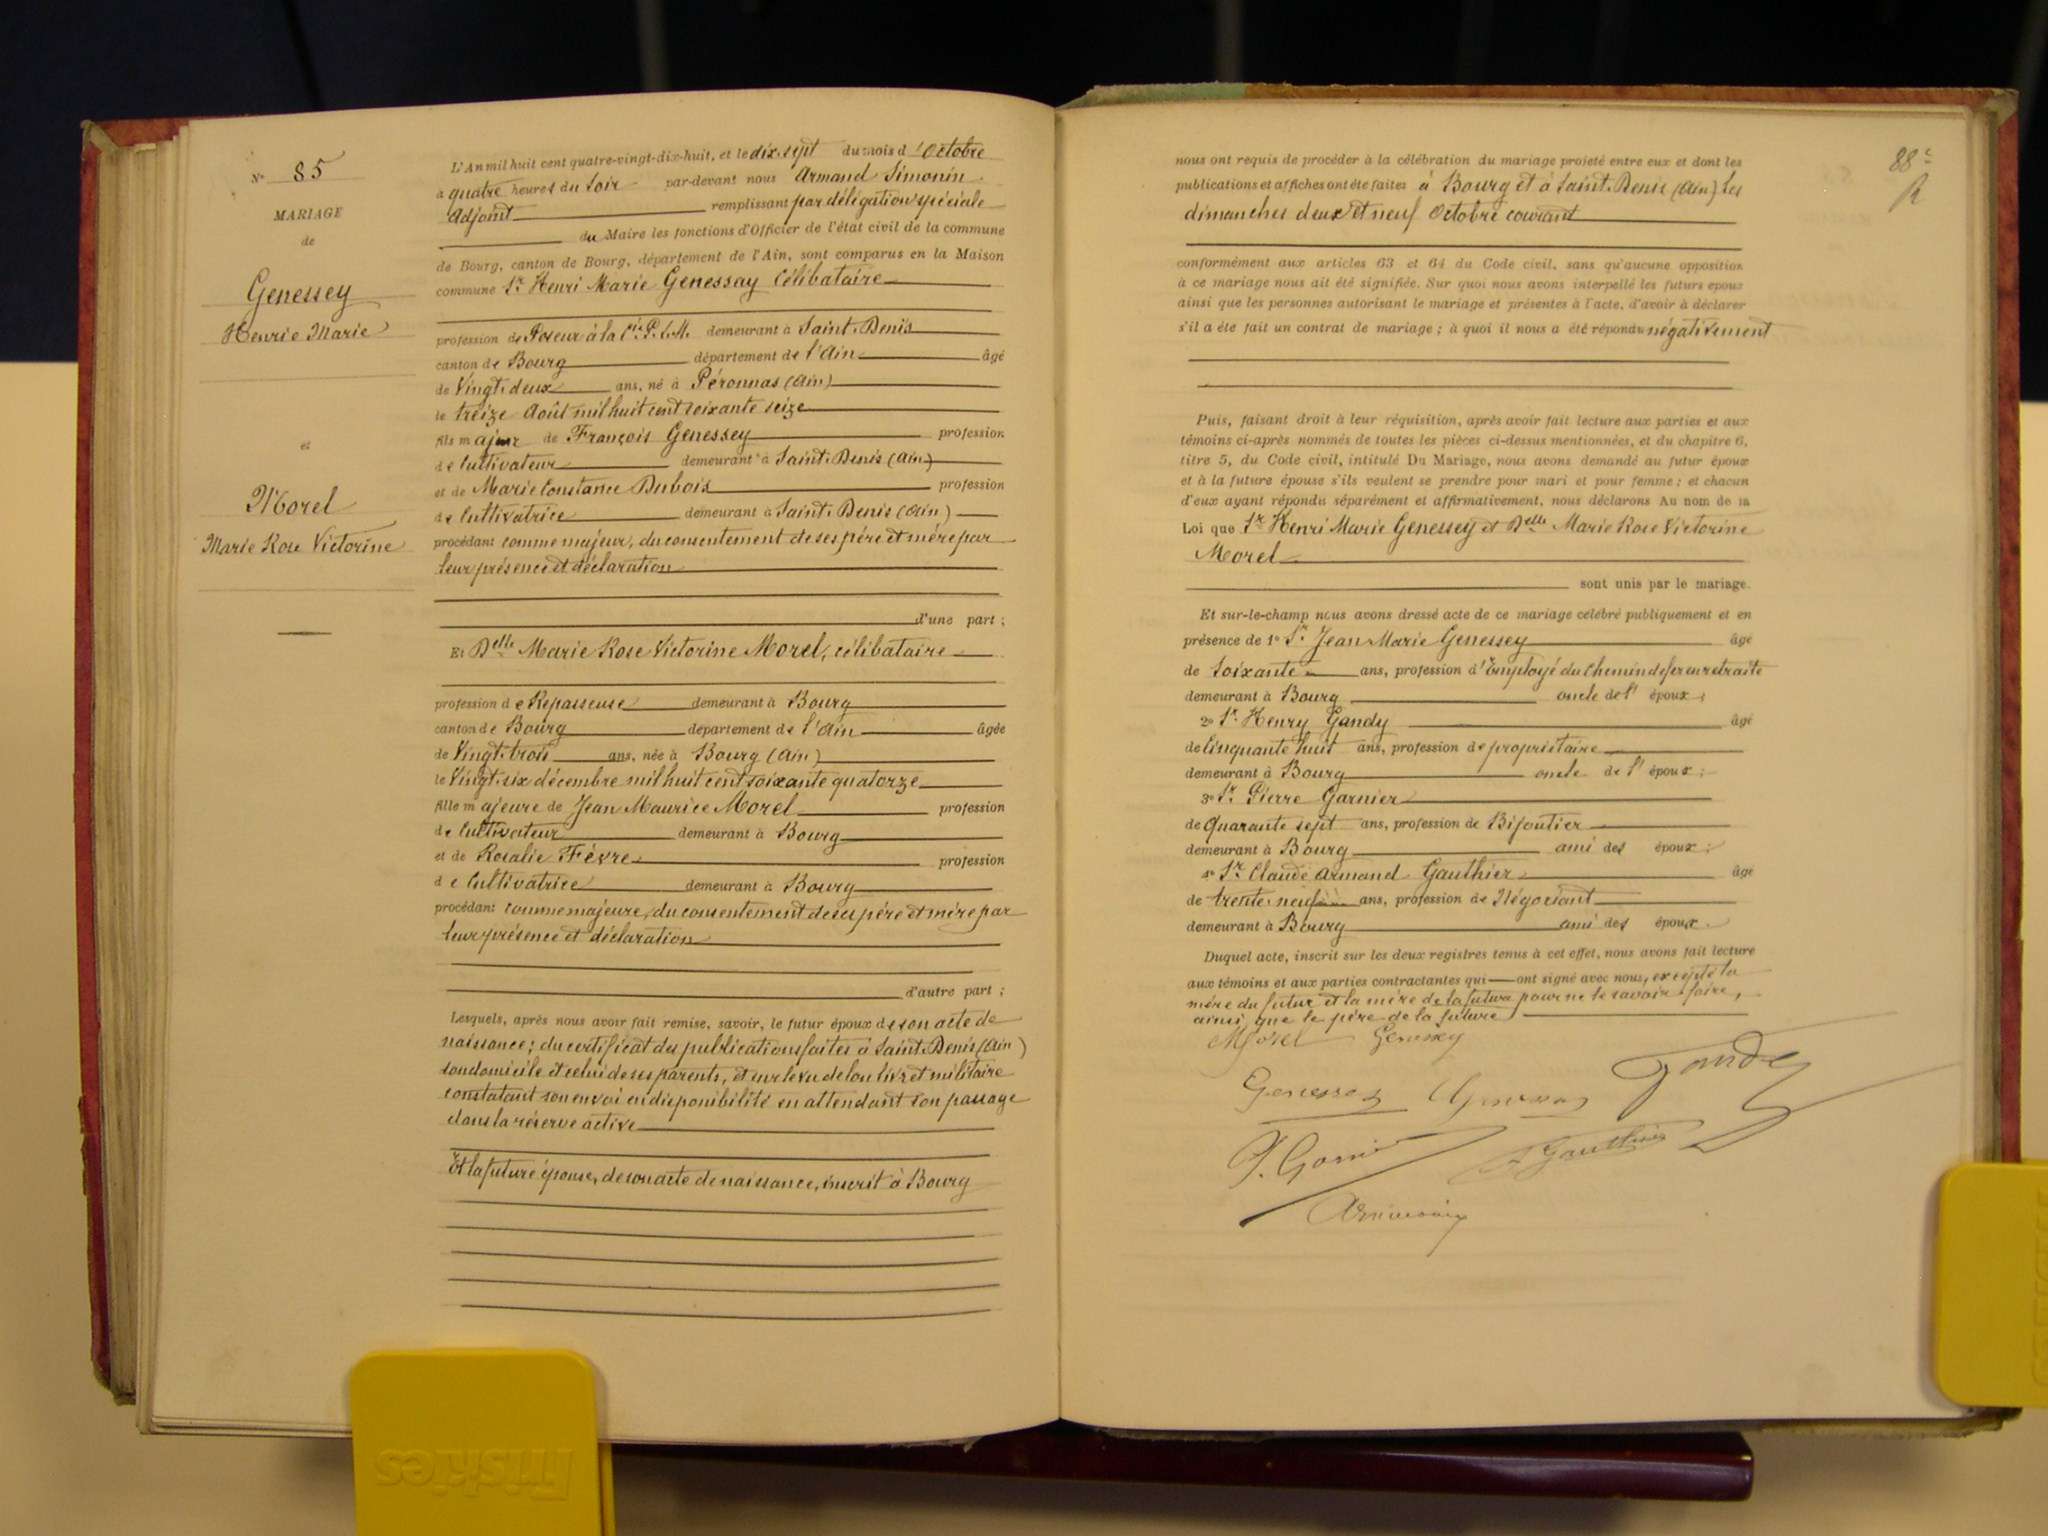 Nº 85
MARIAGE
de
Genessey
Henrie Marie
et
Morel
Marie Rose Victorine
L'An mil huit cent quatre-vingt-dix-huit, et le dix-sept du mois d'Octobre
à quatre heures du Soir par-devant nous Armand Simonin
Adjoint remplissant par délégation spéciale
du Maire les fonctions d'Officier de l'état civil de la commune
de Bourg, canton de Bourg, département de l'Ain, sont comparus en la Maison
commune Sr Henri Marie Genessay Célibataire
profession de Poseur à la Cie P.L.M. demeurant à Saint-Denis
canton de Bourg département de l'Ain âgé
de Vingt-deux ans, né à Péronnas (Ain)
le treize Août mil huit cent soixante seize
fils majeur de François Genessey profession
de Cultivateur demeurant à Saint-Denis (Ain)
et de Marie Constance Dubois profession
de Cultivatrice demeurant à Saint-Denis (Ain)
procédant comme majeur, du consentement de ses père et mère par
leur présence et déclaration
d'une part ;
Et Delle Marie Rose Victorine Morel, célibataire
profession de Repasseuse demeurant à Bourg
canton de Bourg département de l'Ain âgée
de Vingt-trois ans, née à Bourg (Ain)
le Vingt-six décembre mil huit cent soixante quatorze
fille majeure de Jean Maurice Morel profession
de Cultivateur demeurant à Bourg
et de Rosalie Fèvre profession
de Cultivatrice demeurant à Bourg
procédant comme majeure, du consentement de ses père et mère par
leur présence et déclaration
d'autre part ;
Lesquels, après nous avoir fait remise, savoir, le futur époux de son acte de
naissance ; du certificat des publications faites à Saint-Denis (Ain)
son domicile et celui de ses parents, et sur le vu de son livret militaire
constatant son envoi en disponibilité en attendant son passage
dans la réserve active
Et la future épouse, de son acte de naissance, inscrit à Bourg
88e
nous ont requis de procéder à la célébration du mariage projeté entre eux et dont les
publications et affiches ont été faites à Bourg et à Saint-Denis (Ain) les
dimanches deux et neuf Octobre courant
conformément aux articles 63 et 64 du Code civil, sans qu'aucune opposition
à ce mariage nous ait été signifiée. Sur quoi nous avons interpellé les futurs époux
ainsi que les personnes autorisant le mariage et présentes à l'acte, d'avoir à déclarer
s'il a été fait un contrat de mariage ; à quoi il nous a été répondu négativement
Puis, faisant droit à leur réquisition, après avoir fait lecture aux parties et aux
témoins ci-après nommés de toutes les pièces ci-dessus mentionnées, et du chapitre 6,
titre 5, du Code civil, intitulé Du Mariage, nous avons demandé au futur époux
et à la future épouse s'ils veulent se prendre pour mari et pour femme ; et chacun
d'eux ayant répondu séparément et affirmativement, nous déclarons Au nom de la
Loi que Sr Henri Marie Genessey et Delle Marie Rose Victorine
Morel
sont unis par le mariage.
Et sur-le-champ nous avons dressé acte de ce mariage célébré publiquement et en
présence de 1º Sr Jean Marie Genessey âgé
de soixante ans, profession d'Employé du Chemin de fer en retraite
demeurant à Bourg oncle de l'époux ;
2º Sr Henry Gandy âgé
de Cinquante huit ans, profession de propriétaire
demeurant à Bourg oncle de l'époux ;
3º Sr Pierre Garnier
de Quarante sept ans, profession de Bijoutier
demeurant à Bourg ami des époux ;
4º Sr Claude Armand Gauthier âgé
de trente-neuf ans, profession de Négociant
demeurant à Bourg ami des époux.
Duquel acte, inscrit sur les deux registres tenus à cet effet, nous avons fait lecture
aux témoins et aux parties contractantes qui ont signé avec nous, excepté la
mère du futur et la mère de la future pour ne le savoir faire,
ainsi que le père de la future
Morel Genessey
Genessey Genessey Gandy
P. Garnier Gauthier
A Simonin
Friskies